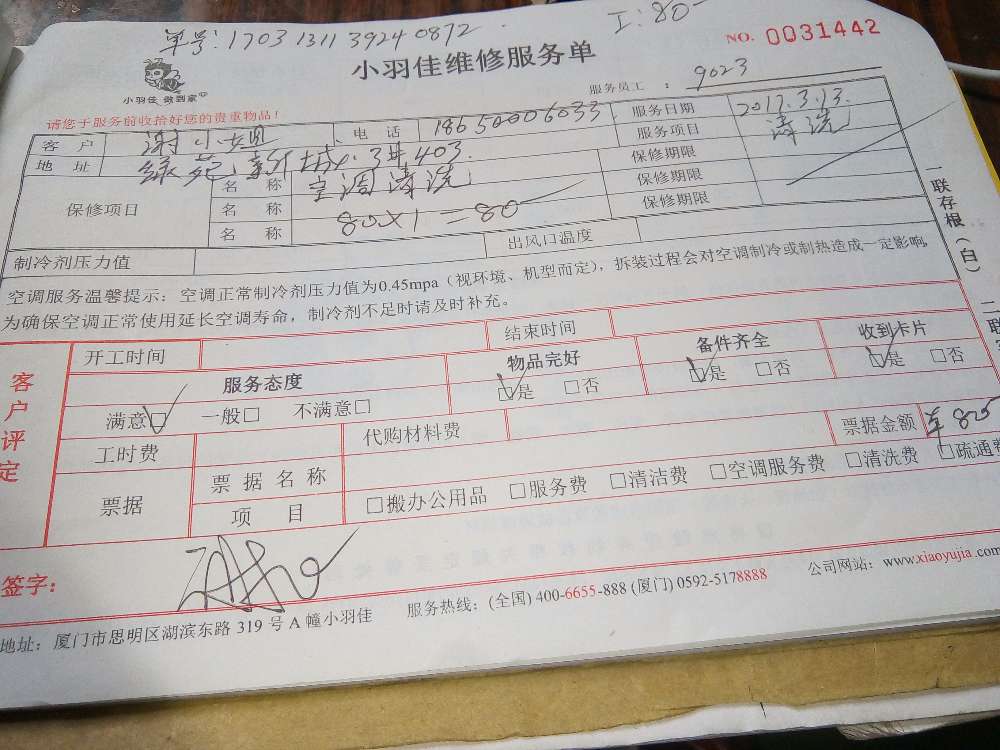 单号:1703131139240872
工:80
NO. 0031442
小羽佳维修服务单
小羽佳 做到家
服务员工 : 9023
请您于服务前收拾好您的贵重物品!
客 户 谢小姐 电 话 18650006033 服务日期 2017.3.13.
地 址 绿苑新城 3# 403 服务项目 清洗
保修项目 名 称 空调清洗 保修期限
名 称 80×1=80 保修期限
名 称 保修期限
制冷剂压力值 出风口温度
空调服务温馨提示:空调正常制冷剂压力值为0.45mpa(视环境、机型而定),拆装过程会对空调制冷或制热造成一定影响,
为确保空调正常使用延长空调寿命,制冷剂不足时请及时补充。
一联存根(白)
二联
客户评定
开工时间 结束时间
服务态度 物品完好 备件齐全 收到卡片
满意☑ 一般□ 不满意□ ☑是 □否 ☑是 □否 ☑是 □否
工时费 代购材料费 票据金额
票据 票据名称
项 目 □搬办公用品 □服务费 □清洁费 □空调服务费 □清洗费 □疏通费
签字:
地址:厦门市思明区湖滨东路 319 号 A 幢小羽佳 服务热线:(全国) 400-6655-888 (厦门) 0592-5178888 公司网站:www.xiaoyujia.com